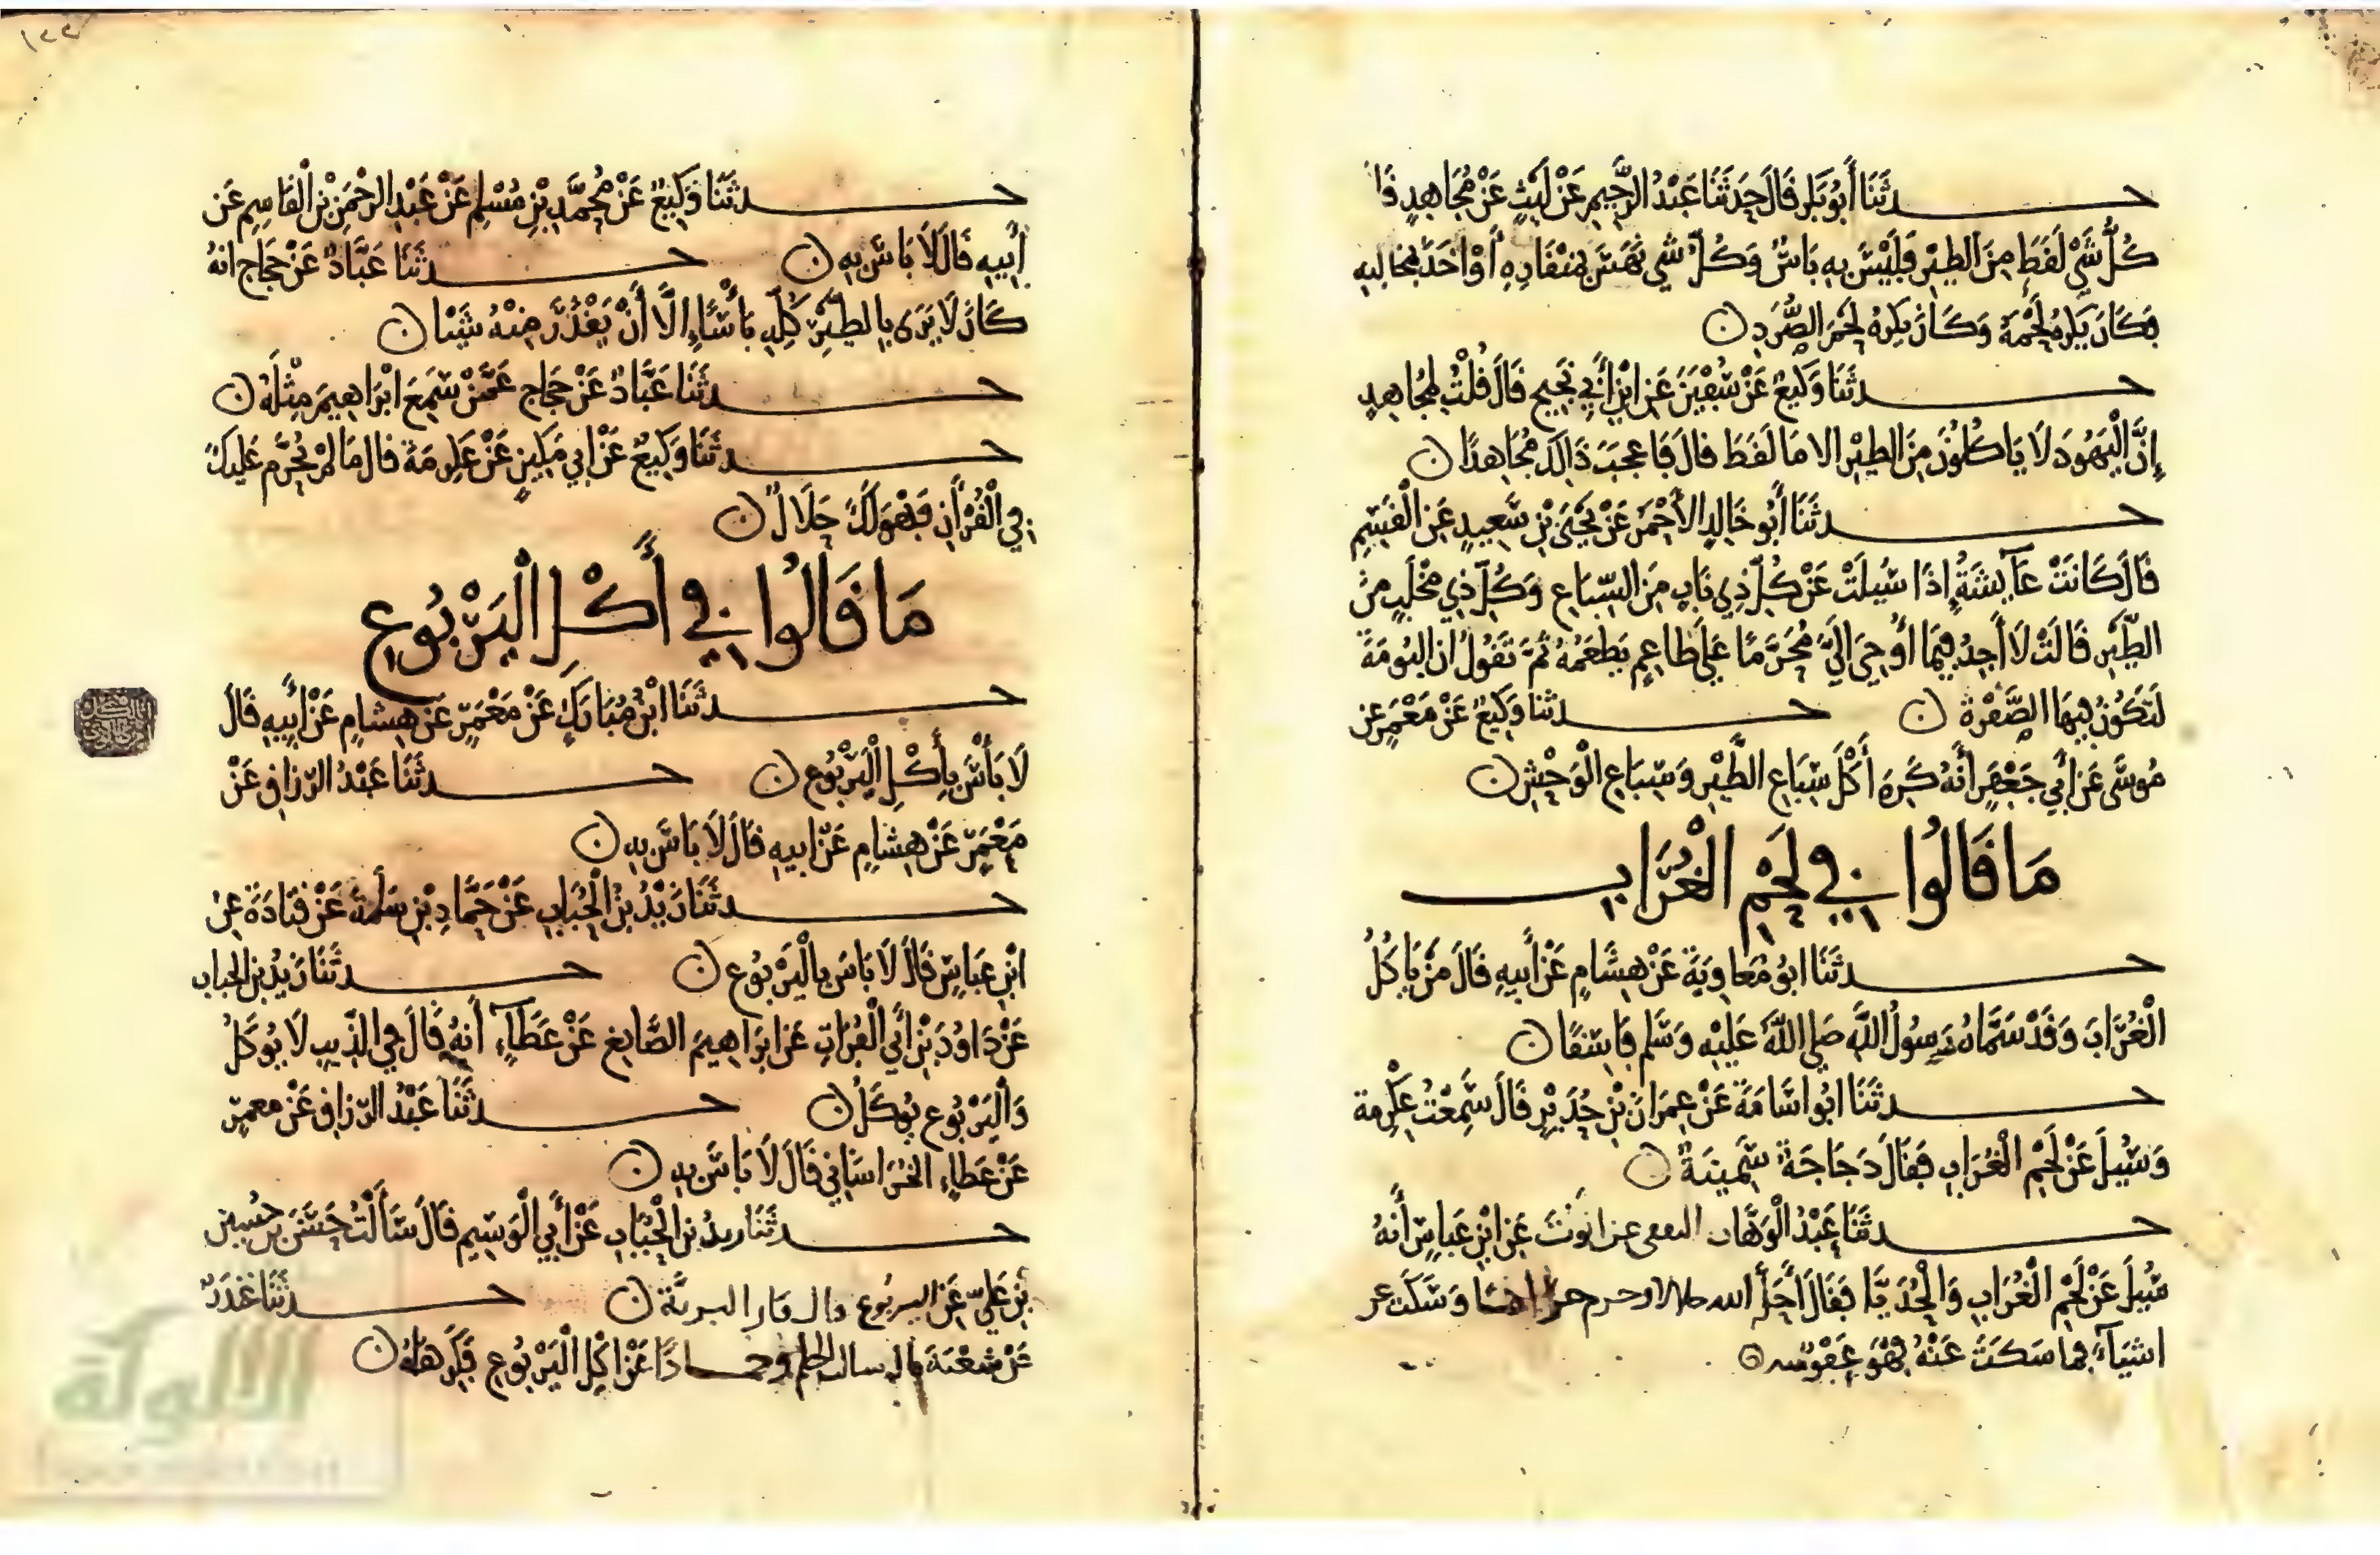 حدثنا أبو بكر قال حدثنا عبد الرحيم عن ليث عن مجاهد قا
كل شي لفط من الطير فليس به باس وكل شي نهس بمنقاده أو اخذ بمخاليبه
فكان يكره لحمه وكان يكره لحم الصرد ن
حدثنا وكيع عن سفين عن ابن أبي نجيح قال قلت لمجاهد
إن اليهود لا ياكلون من الطير الا ما لفط قال فاعجب ذالك مجاهدا ن
حدثنا أبو خالد الأحمر عن يحيى بن سعيد عن القسم
قال كانت عآيشة إذا سيلت عن كل ذي ناب من السباع وكل ذي مخلب من
الطير قالت لا أجد فيما أوحي الي محرما على طاعم يطعمه ثم تقول ان البرمة
لتكون فيها الصفرة ن حدثنا وكيع عن معمر عن
موسى عن ابي جعفر أنه كره أكل سباع الطير وسباع الوحش ن
ما قالوا في لحم الغراب
حدثنا ابو معاوية عن هشام عن أبيه قال من ياكل
الغراب وقد سماه رسول الله صلى الله عليه وسلم فاسقا ن
حدثنا ابو اسامة عن عمران بن حدير قال سمعت عكرمة
وسيل عن لحم الغراب فقال دجاجة سمينة ن
حدثنا عبد الوهاب الثقفي عن ايوب عن ابن عباس أنه
سيل عن لحم الغراب والحديا فقال أحل الله حلالا وحرم حراما وسكت عن
اشيآء فما سكت عنه فهو عفو منه
١٢٢
حدثنا وكيع عن محمد بن مسلم عن عبد الرحمن بن القاسم عن
أبيه قال لا باس به ن حدثنا عباد عن حجاج انه
كان لا يرى بالطير كله بأسا إلا أن يقذر منه شيئا ن
حدثنا عباد عن حجاج عمن سمع ابراهيم مثله ن
حدثنا وكيع عن ابي مكين عن عكرمة قال ما لم يحرم عليك
في القرآن فهو لك حلال ن
ما قالوا في أكل اليربوع
حدثنا ابن مبارك عن معمر عن هشام عن أبيه قال
لا بأس بأكل اليربوع ن حدثنا عبد الرزاق عن
معمر عن هشام عن ابيه قال لا باس به ن
حدثنا زيد بن الحباب عن حماد بن سلمة عن قتادة عن
ابن عباس قال لا باس باليربوع ن حدثنا زيد بن الحباب
عن داود بن أبي الفرات عن ابراهيم الصايغ عن عطآء أنه قال في الذيب لا يوكل
واليربوع يوكل ن حدثنا عبد الرزاق عن معمر
عن عطاء الخراساني قال لا باس به ن
حدثنا زيد بن الحباب عن أبي الوسيم قال سألت حسن بن حسين
بن علي عن اليربوع قال فار البرية ن حدثنا غندر
عن شعبة قال سالت الحكم وحمادا عن اكل اليربوع فكرهاه ن
الألوكة